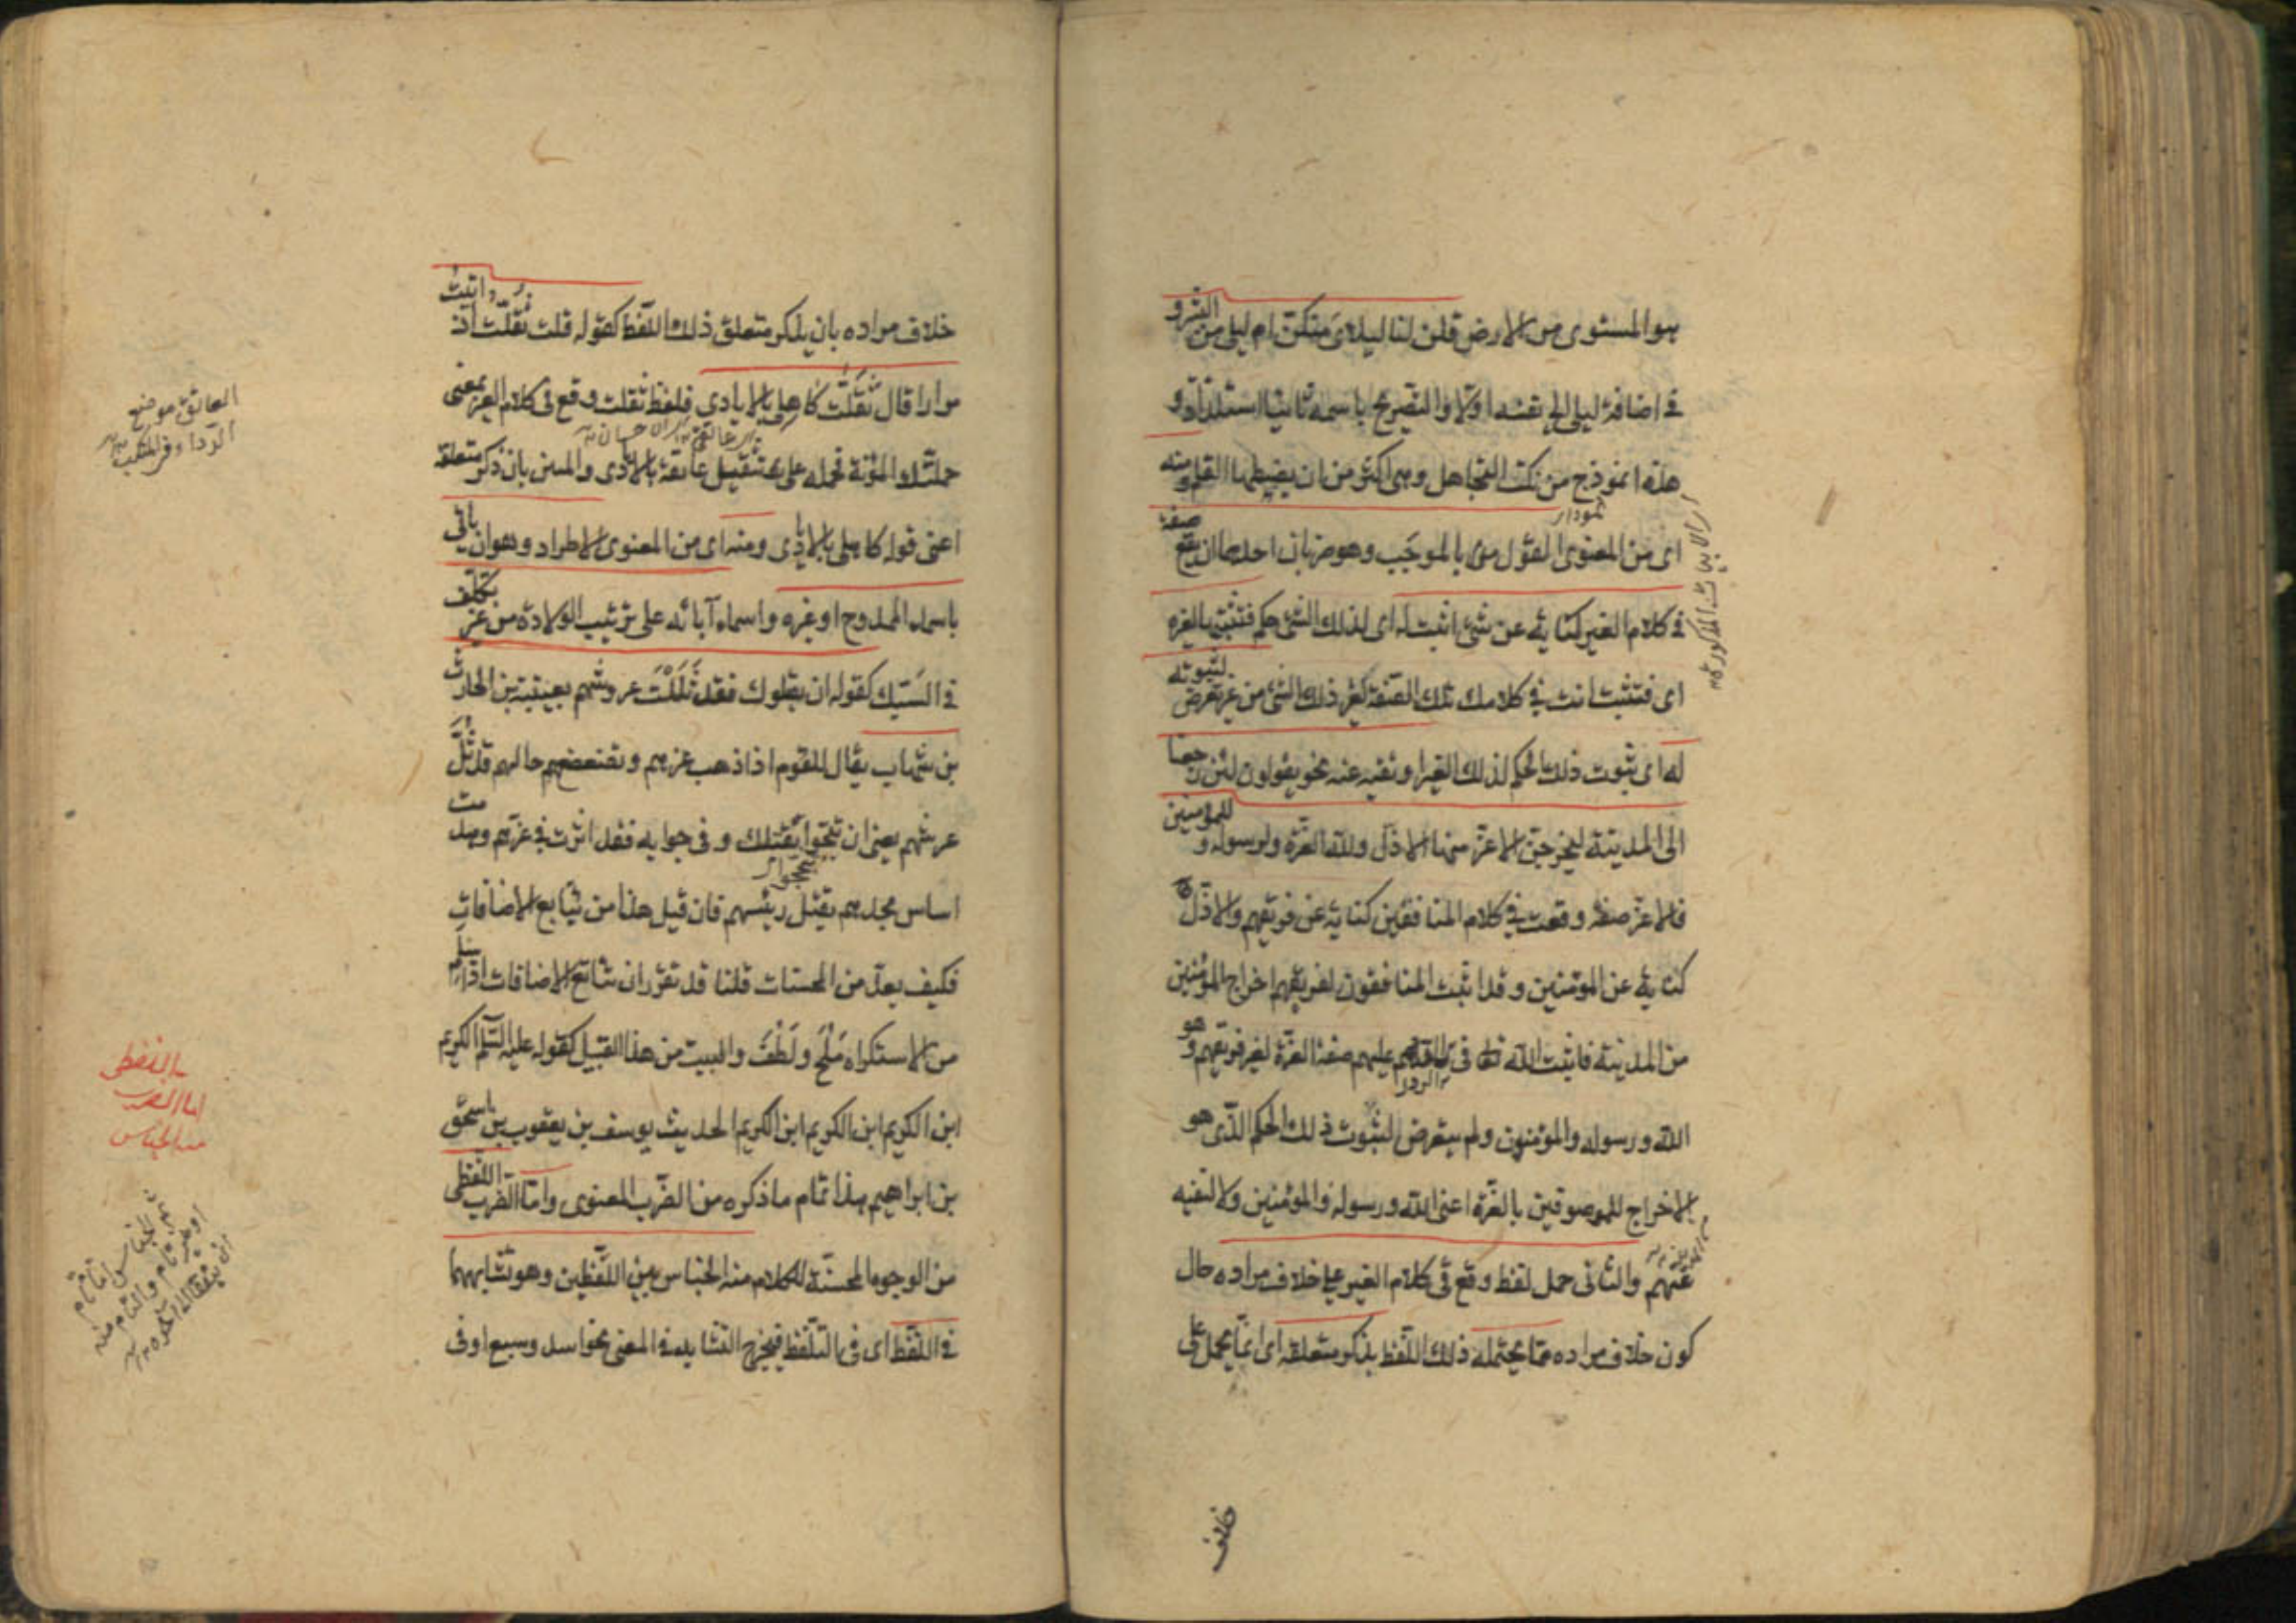 هو المستوى من الارض قلن لنا ليلاى منكن ام ليلى من البشر و
فى اضافة ليلى الى نفسه اولا و التصريح باسمه ثانيا استلذاذ و
هذه انموذج من نكت التجاهل وهى اكثر من ان يضبطها القلم و منه
نمودار
اى من المعنوى القول بالموجب وهو ضربان احدهما ان يقع صفة
فى كلام الغير كناية عن شئ اثبت له اى لذلك الشئ حكم فتثبتها لغيره
اى فتثبت انت فى كلامك تلك الصفة لغير ذلك الشئ من غير تعرض لثبوته
له اى ثبوت ذلك الحكم لذلك الغير او نفيه عنه نحو يقولون لئن رجعنا
الى المدينة ليخرجن الاعز منها الاذل ولله العزة ولرسوله و للمؤمنين
فالاعز صفة وقعت فى كلام المنافقين كناية عن فريقهم والاذل
كناية عن المؤمنين وقد اثبت المنافقون لفريقهم اخراج المؤمنين
من المدينة فاثبت الله تعالى فى الرد عليهم صفة العزة لغير فريقهم و هو
الله ورسوله والمؤمنون ولم يتعرض لثبوت ذلك الحكم الذى هو
الاخراج للموصوفين بالعزة اعنى الله ورسوله والمؤمنين ولا لنفيه
عنهم والثانى حمل لفظ وقع فى كلام الغير على خلاف مراده حال
كون خلاف مراده مما يحتمله ذلك اللفظ بذكر متعلقه اى انما يحمل على
اى الابيات المذكورة
خلاف
خلاف مراده بان يذكر متعلق ذلك اللفظ كقوله قلت ثقلت اذ اتيت
مرارا قال ثقلت كاهلى بالايادى فلفظ ثقلت وقع فى كلام الغير بمعنى
حملتك المؤنة فحمله على تثقيل عاتقه بالايادى والمنن بان ذكر متعلقه
اعنى قوله كاهلى بالايادى ومنه اى من المعنوى الاطراد وهو ان ياتى
باسماء الممدوح او غيره واسماء آبائه على ترتيب الولادة من غير تكلف
فى السبك كقوله ان يقتلوك فقد ثللت عروشهم بعتيبة بن الحارث
بن شهاب يقال للقوم اذا ذهب عزهم وتضعضع حالهم قد ثل
عرشهم يعنى ان تبجحوا بقتلك و فى جوابه فقد اثرت فى عزهم وهدمت
اساس مجدهم بقتل رئيسهم فان قيل هذا من تتابع الاضافات
فكيف يعد من المحسنات قلنا قد تقرر ان تتابع الاضافات اذا سلم
من الاستكراه ملح ولطف والبيت من هذا القبيل كقوله عليه السلام الكريم
ابن الكريم ابن الكريم ابن الكريم الحديث يوسف بن يعقوب بن اسحق
بن ابراهيم هذا تمام ما ذكره من الضرب المعنوى واما الضرب اللفظى
من الوجوه المحسنة للكلام منه الجناس بين اللفظين وهو تشابههما
فى اللفظ اى فى التلفظ فيخرج التشابه فى المعنى نحو اسد وسبع او فى
العاتق موضع
الرداء من المنكب
اللفظى
اما الضرب
منه الجناس